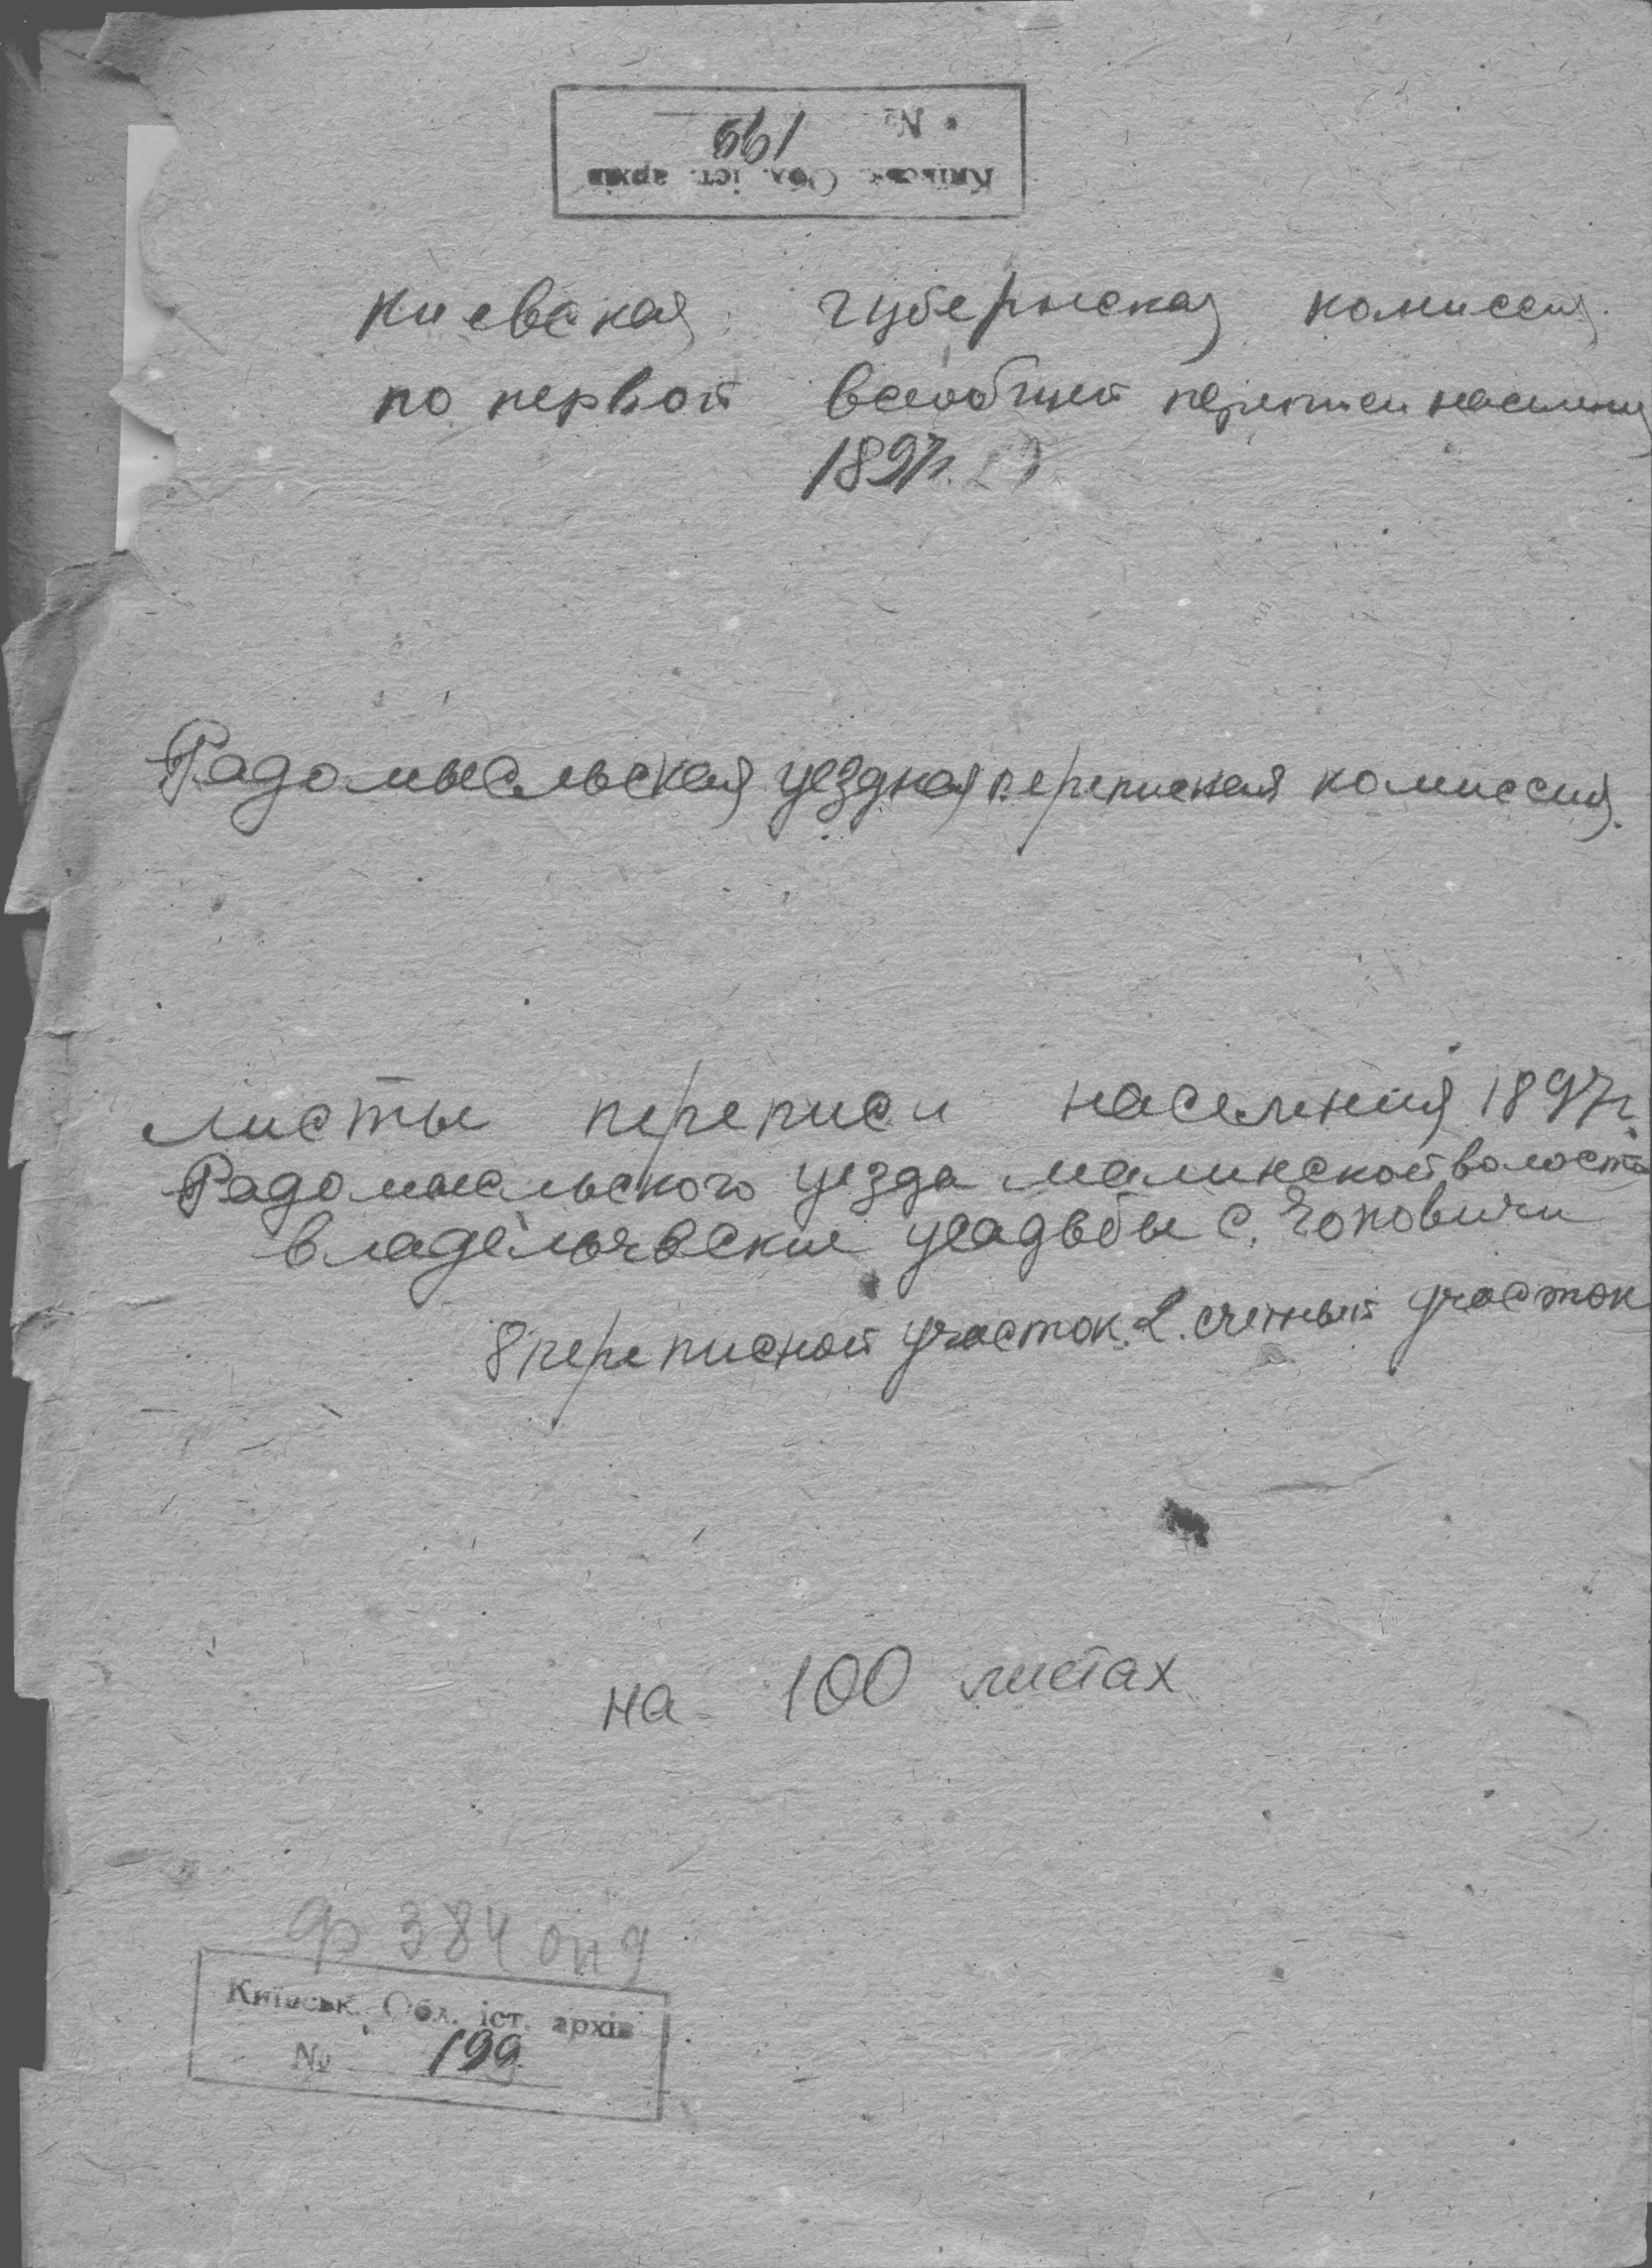 № 199
Київськ. Обл. іст. архів
Киевская губернская комиссия
по первой всеобщей переписи населения
1897г.
Радомысльская уездная переписная комиссия.
Листы переписи населения 1897г.
Радомысльского уезда Малинской волости
владельческие усадьбы с. Чоповичи
8 переписной участок. 2. счетный участок
на 100 листах
ф 384 оп 9
Київськ. Обл. іст. архів
№ 199